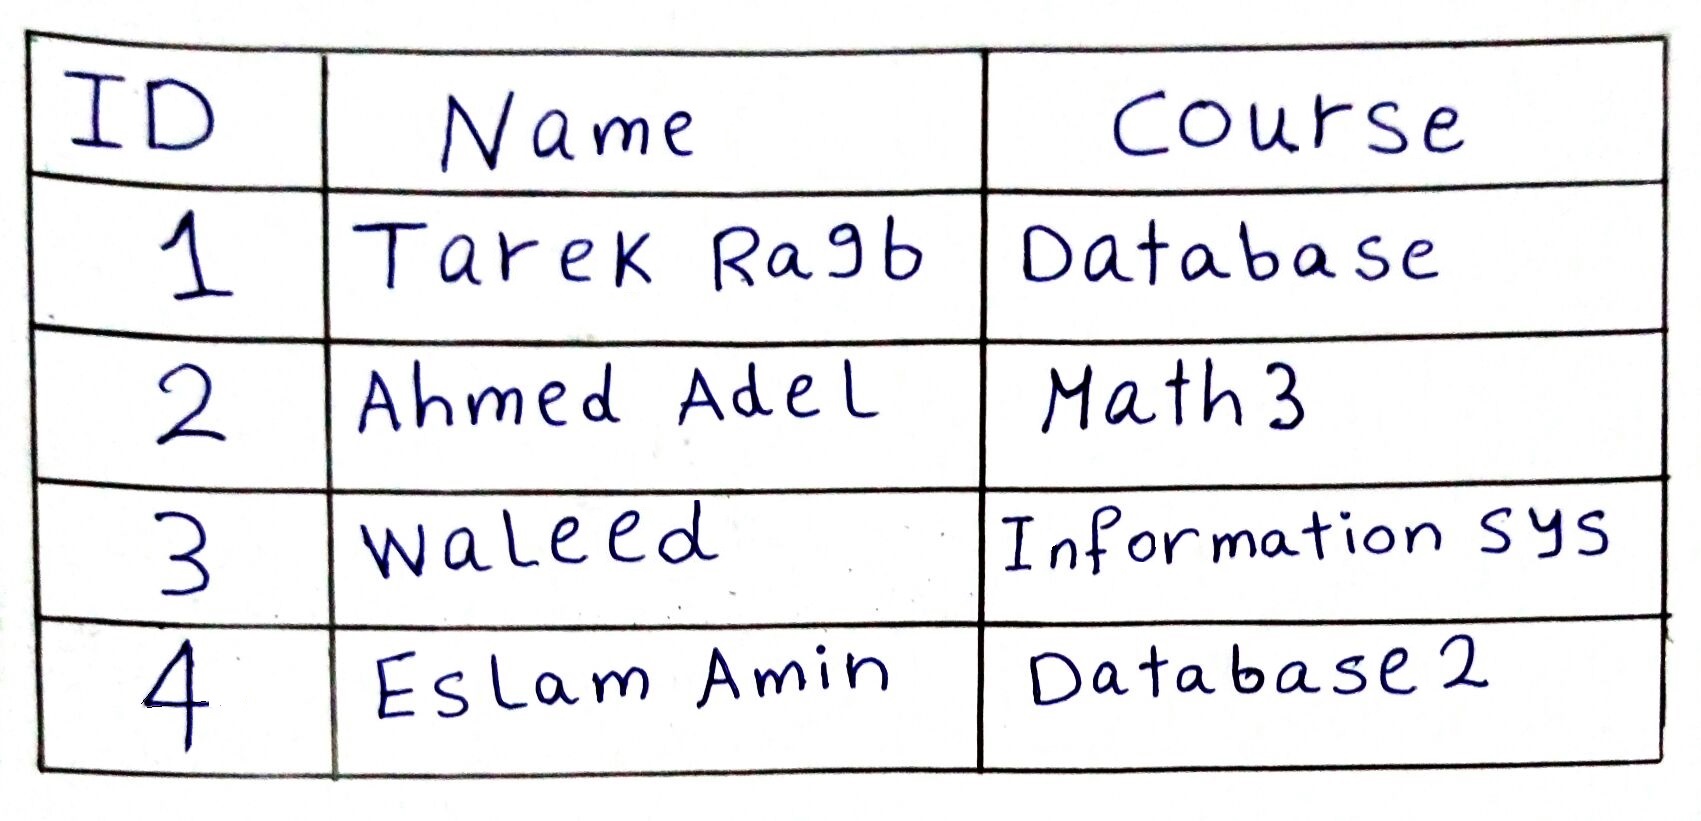 ID Name Course
1 Tarek Ragb Database
2 Ahmed Adel Math3
3 Waleed Information sys
4 Eslam Amin Database2